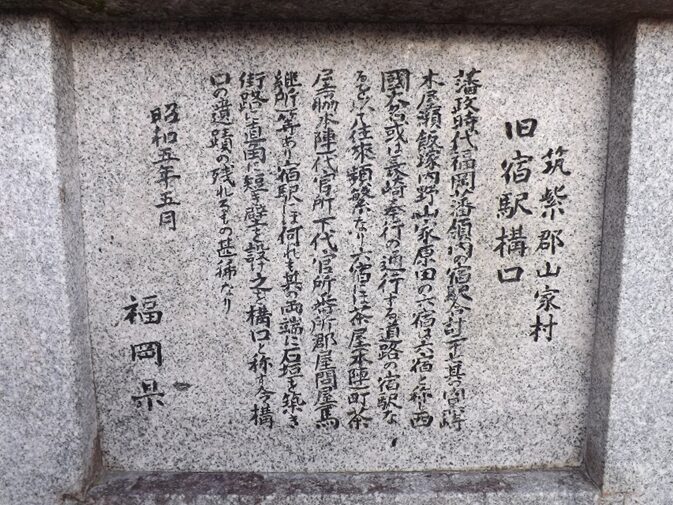 筑紫郡山家村
旧宿駅構口
藩政時代福岡藩領内の宿駅合計二十一其の内
木屋瀬飯塚内野山家原田の六宿を六宿と称し西
國大名或は長崎奉行の通行する道路の宿駅な
るを以て往來頻繁なり六宿には茶屋本陣町茶
屋脇本陣代官所下代官所番所郡屋問屋馬
継所等あり宿駅には何れも其の両端に石垣を築き
街路に直角に短き壁を設け之を構口と称す今構
口の遺蹟の残れるもの甚稀なり
昭和五年五月
福岡県